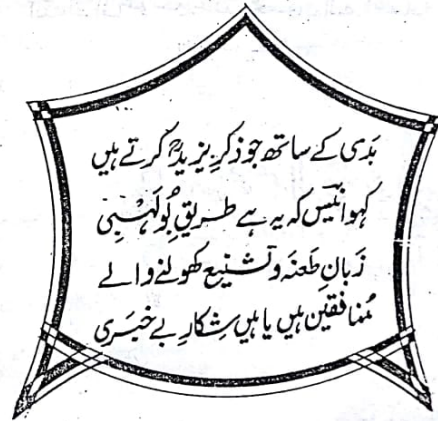 بَدی کے ساتھ جو ذکرِ یزیدؒ کرتے ہیں
کہو انیسؔ کہ یہ ہے طریقِ بُولہبی
زبانِ طَعنہ و تشنیع کھولنے والے
مُنافقین ہیں یا ہیں شکارِ بے خبَری